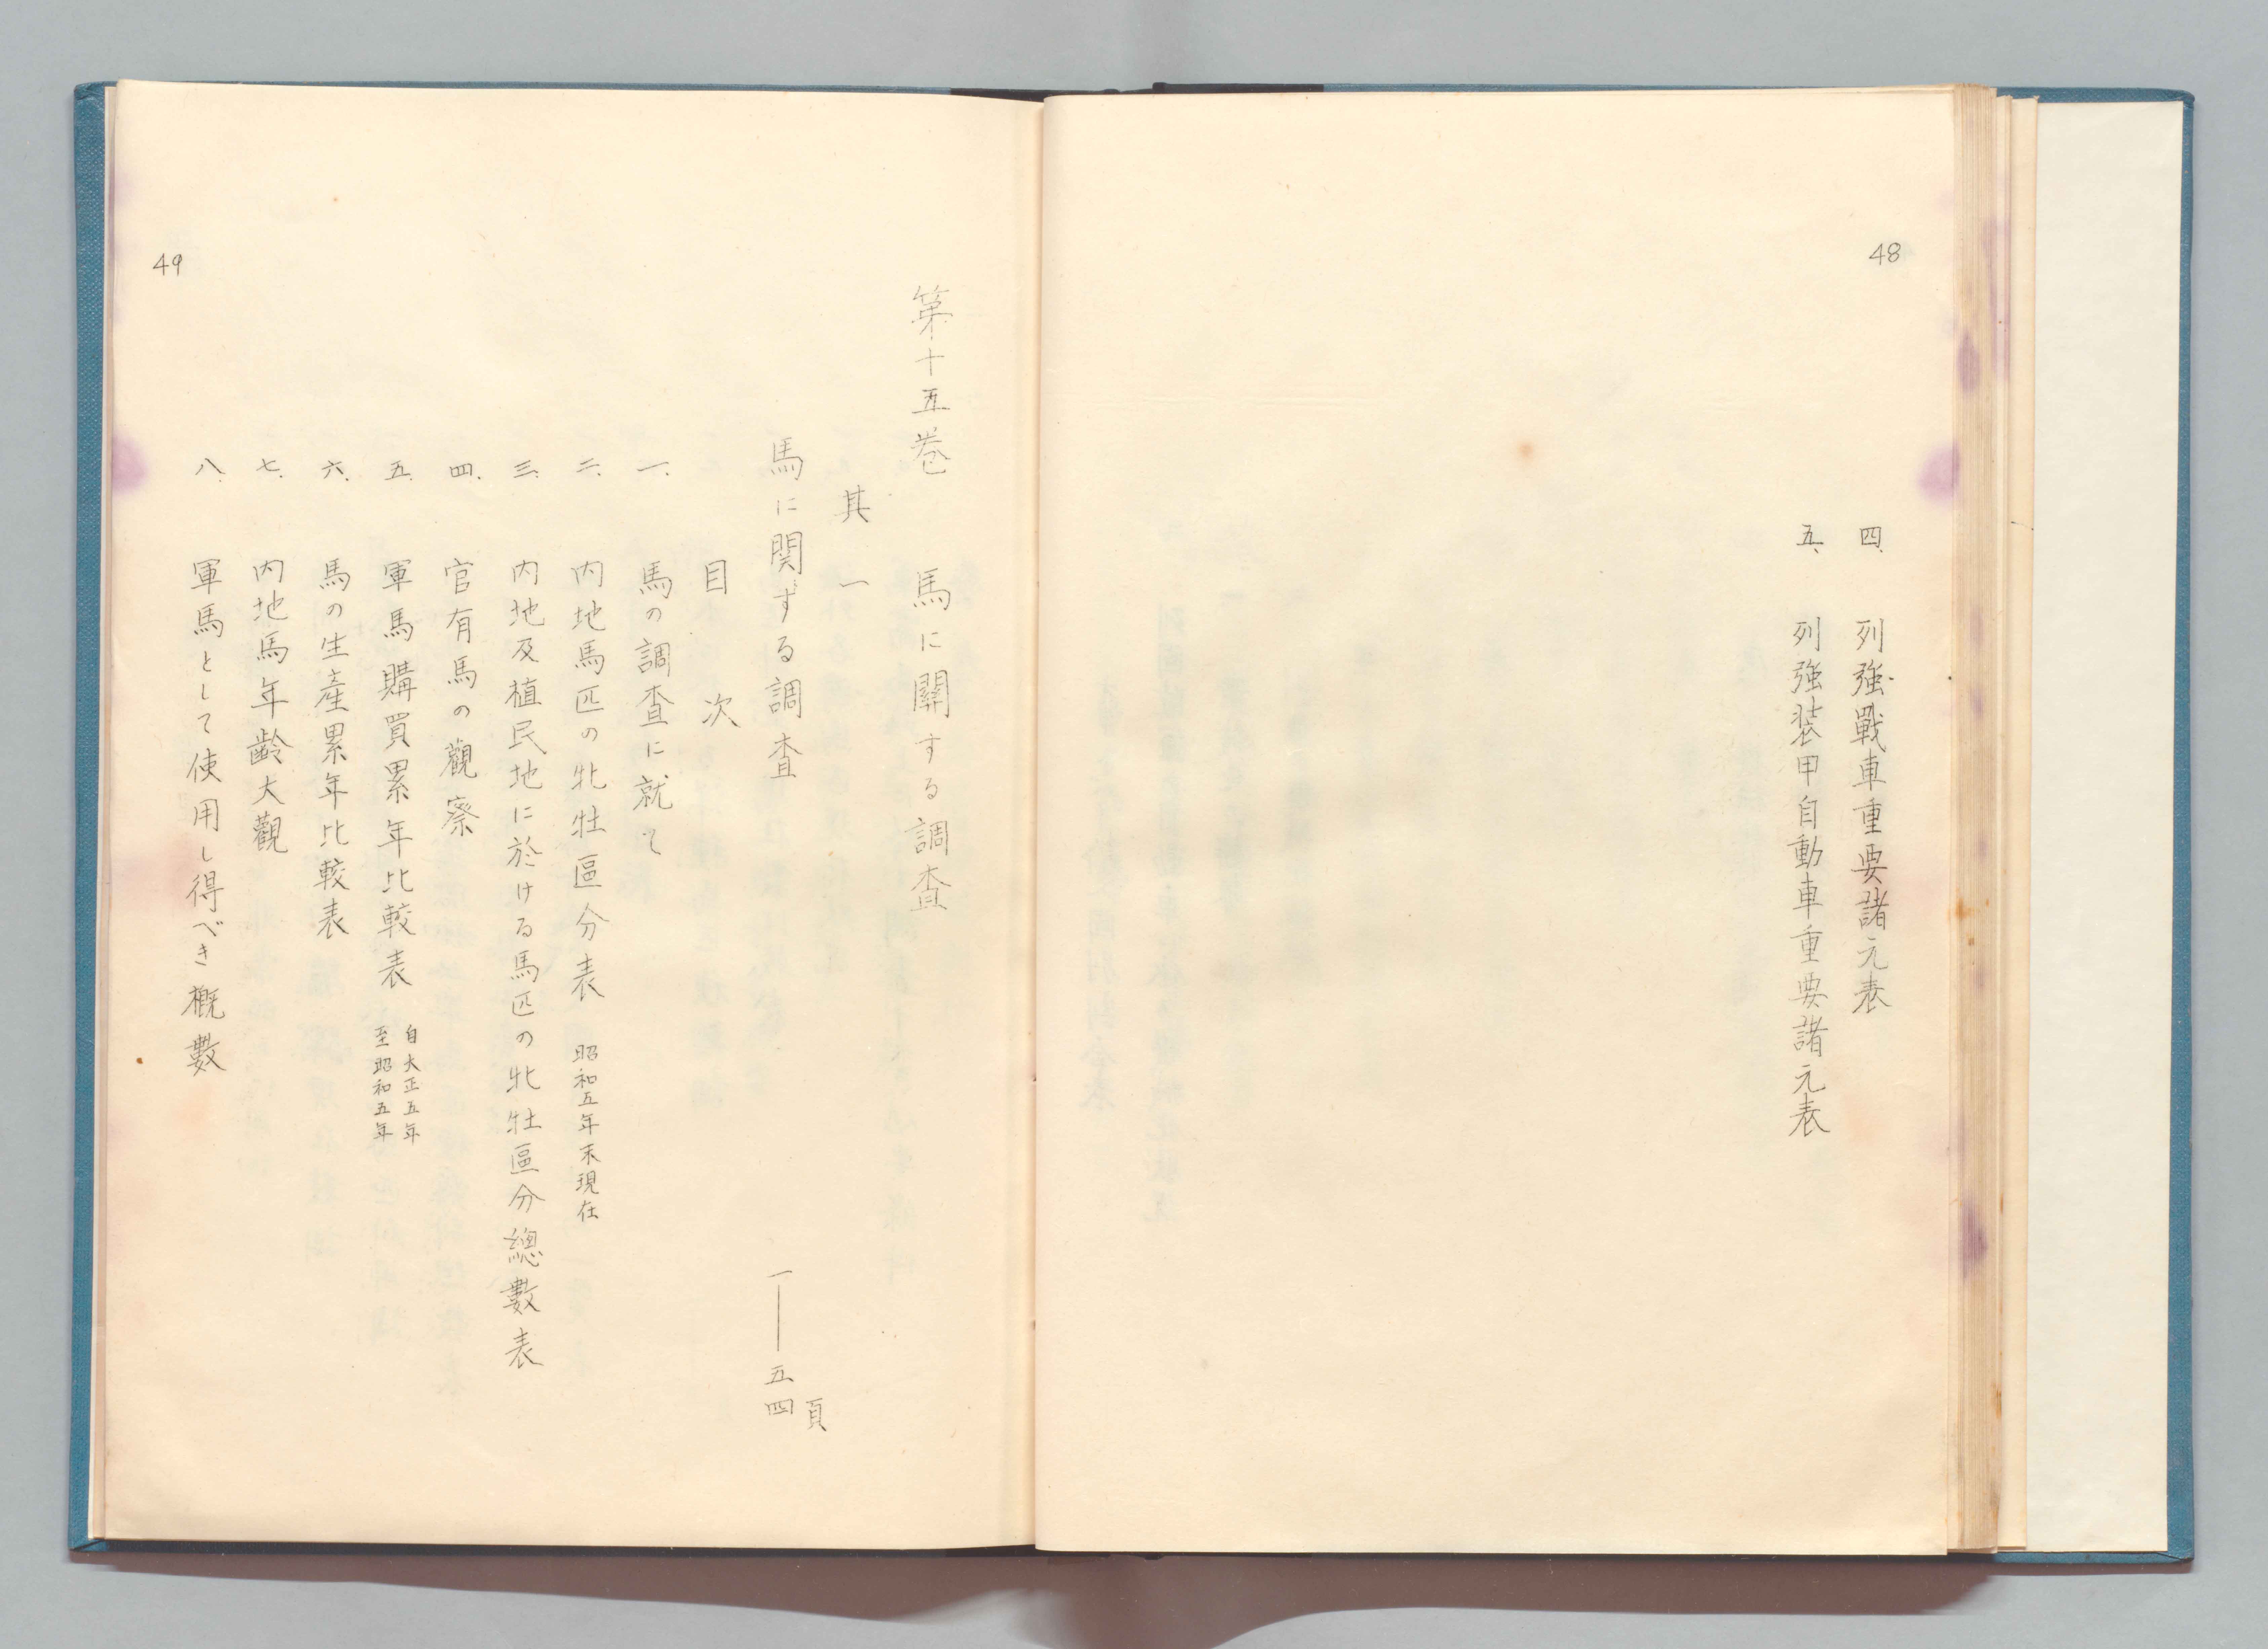 48
四、列強戰車重要諸元表
五、列強装甲自動車重要諸元表
第十五巻　馬に關する調査
其一
馬に関ずる調査　一――五四頁
目次
一、馬の調査に就て
二、内地馬匹の牝牡區分表　昭和五年末現在
三、内地及植民地に於ける馬匹の牝牡區分總數表
四、官有馬の觀察
五、軍馬購買累年比較表　自大正五年　至昭和五年
六、馬の生產累年比較表
七、内地馬年齢大觀
八、軍馬として使用し得べき概數
49